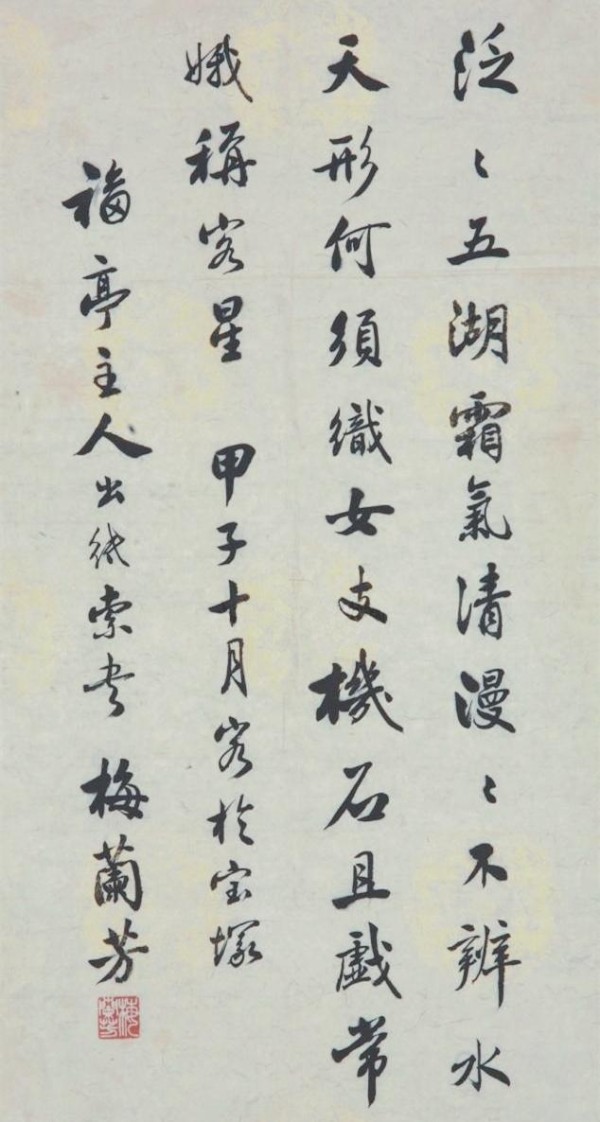 泛〻五湖霜氣清漫〻不辨水
天形何須織女支機石且戲常
娥稱客星 甲子十月客於宝塚
福亭主人出紙索书 梅蘭芳